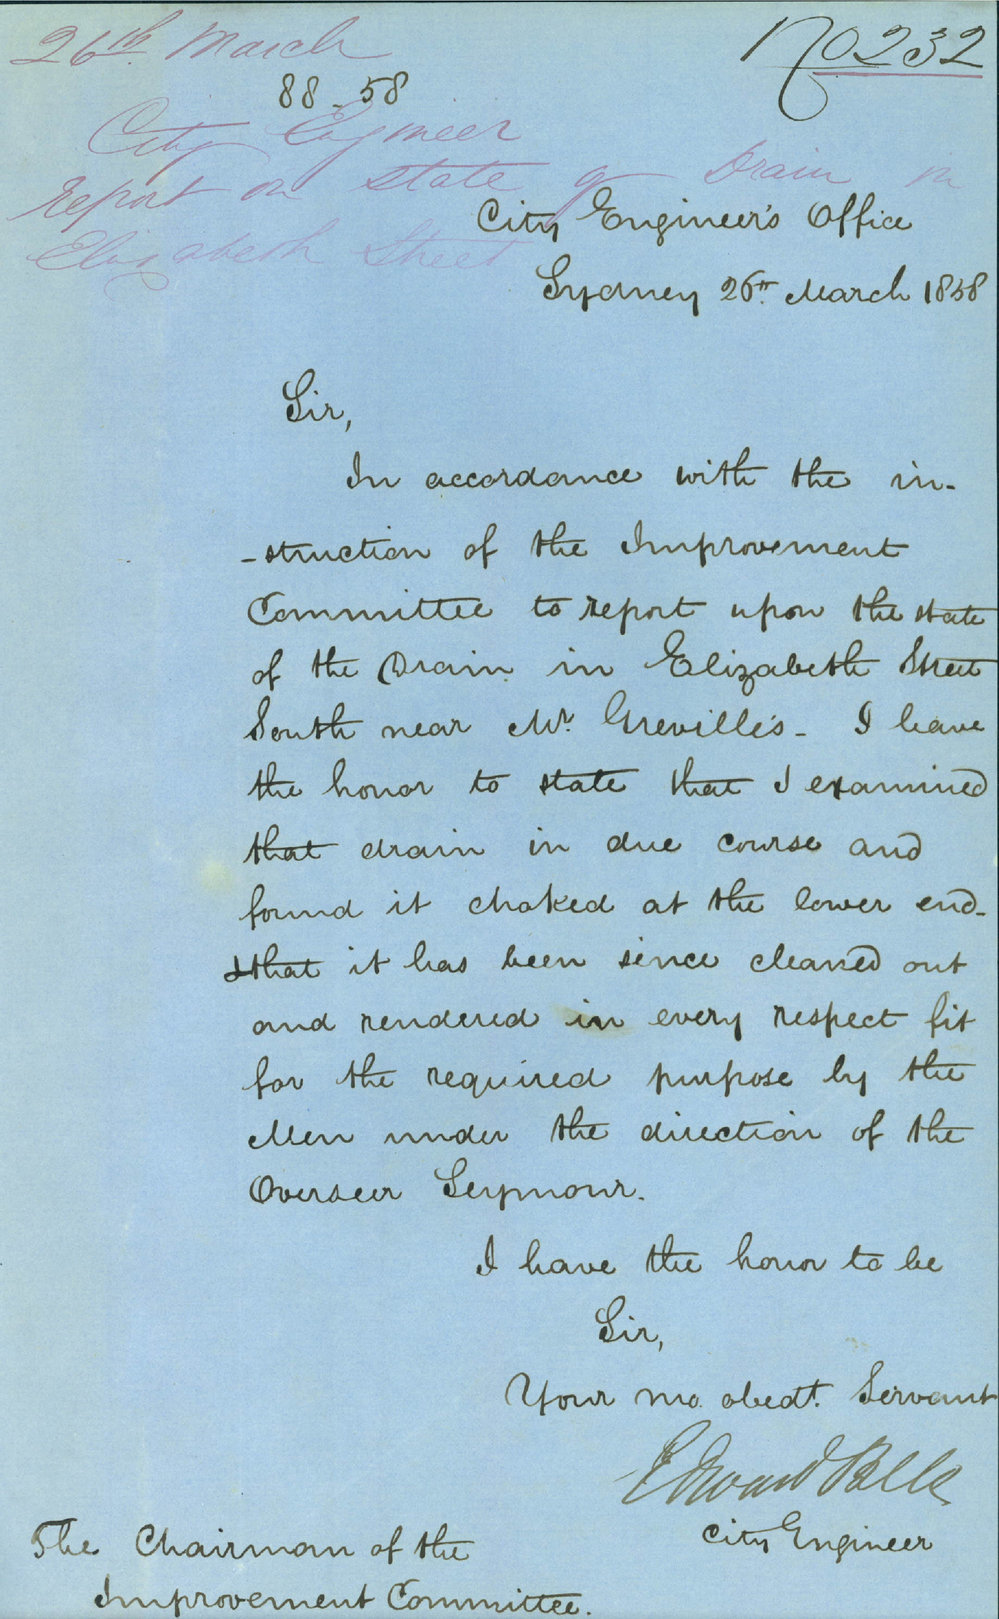 26th March
No 232
88-58
City Engineer
report on state of Drain in
Elizabeth Street
City Engineer's Office
Sydney 26th March 1858
Sir,
In accordance with the in-
-struction of the Improvement
Committee to report upon the state
of the Drain in Elizabeth Street
South near Mr. Greville's - I have
the honor to state that I examined
that drain in due course and
found it choked at the lower end -
& that it has been since cleaned out
and rendered in every respect fit
for the required purpose by the
Men under the direction of the
Overseer Seymour.
I have the honor to be
Sir,
Your mo. obedt. Servant
Edward Bell
City Engineer
The Chairman of the
Improvement Committee.